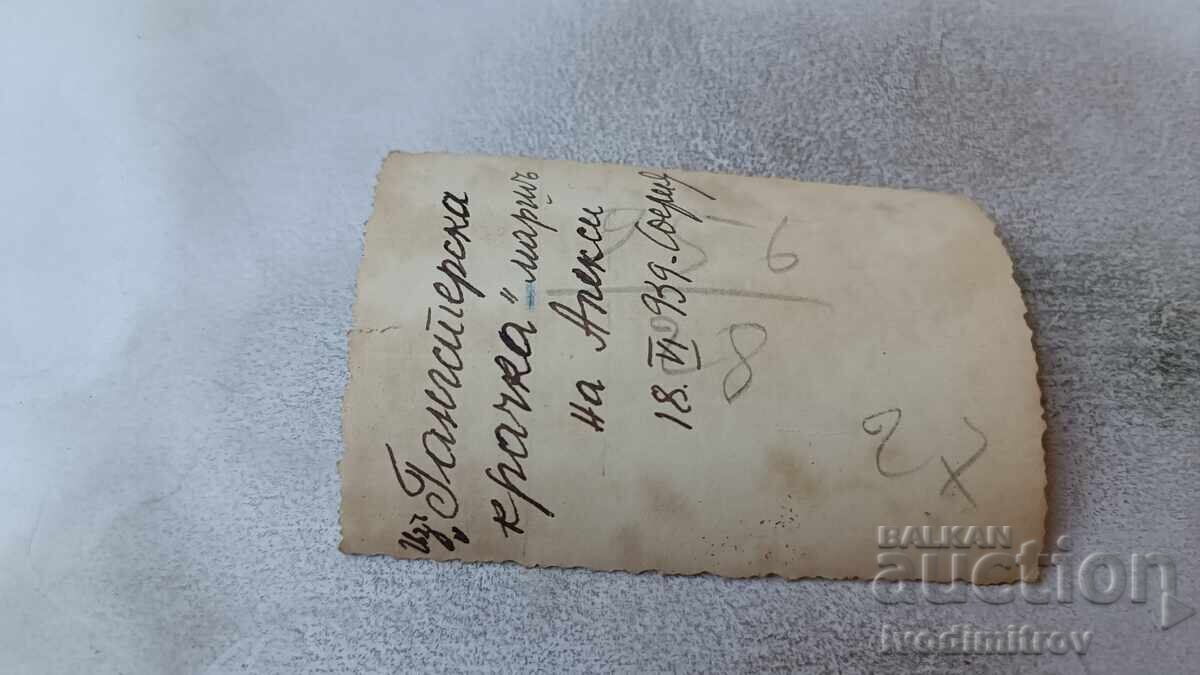 Изъ
„Гангстерска
крачка“ маршъ
на Алекси
18. VI 939 - София
8 6
2
X
BALKAN
auction
ivodimitrov